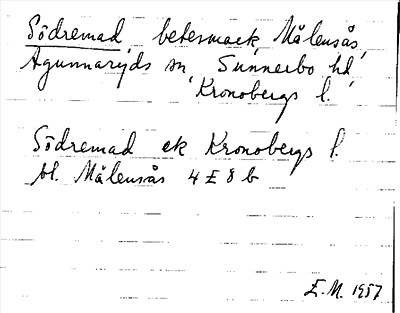 Södremad betesmark, Målensås,
Agunnaryds sn, Sunnerbo hd,
Kronobergs l.
Södremad ek Kronobergs l.
bl. Målensås 4 E 8 b
E.M. 1957